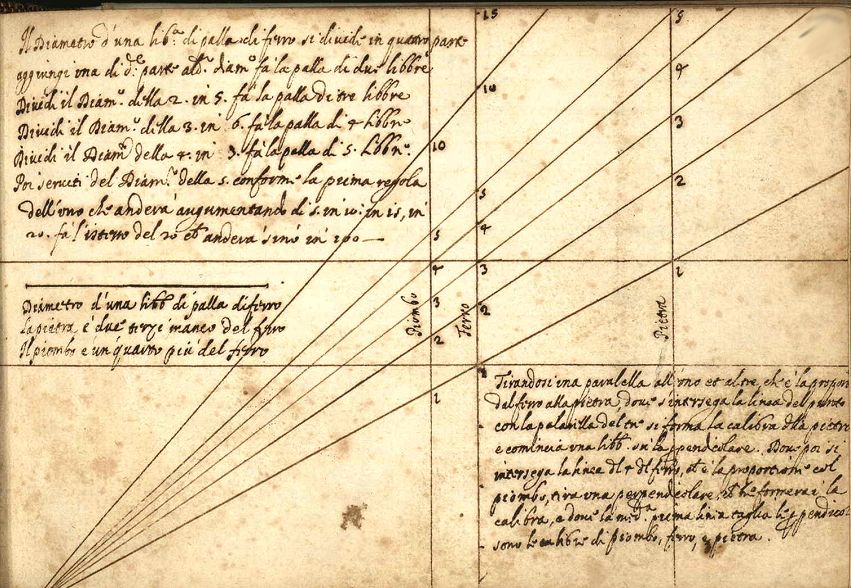 Il Diametro d'una lib.ª di palla di ferro si divide in quattro parte
aggiungi una di d.e parte al d.o diam.o fà la palla di due libbre
Dividi il Diam.o della 2. in 5. fà la palla di tre libbre
Dividi il Diam.o della 3. in 6. fà la palla di 4 libbre
Dividi il Diam.o della 4. in 3. fà la palla di 5. libbre
Poi serviti del Diam.o della 5. conforme la prima regola
dell'uno che anderà augumentando di 5. in 10: in 15, in
20. fà l'istesso del 20 et anderà sino in 100
Diametro d'una libb. di palla di ferro
la pietra è due terzi manco del ferro
Il piombo è un quarto più del ferro
Piombo
Ferro
Pietra
10
5
4
3
2
1
15
10
5
4
3
2
1
5
4
3
2
1
Tirandosi una paralella all'uno et al tre, che è la propor
dal ferro alla pietra, dove s'intersega la linea del punto
con la paralella del tre si forma la calibra della pietra
e comincia una libb. su la ppendicolare. Dove poi si
intersega la linea del 4 del ferro, et è la proportione col
piombo, tira una perpendicolare, et formerai la
calibra, e dove la med.ª prima linia taglia le ppendicol
sono le calibre di piombo, ferro, e pietra.